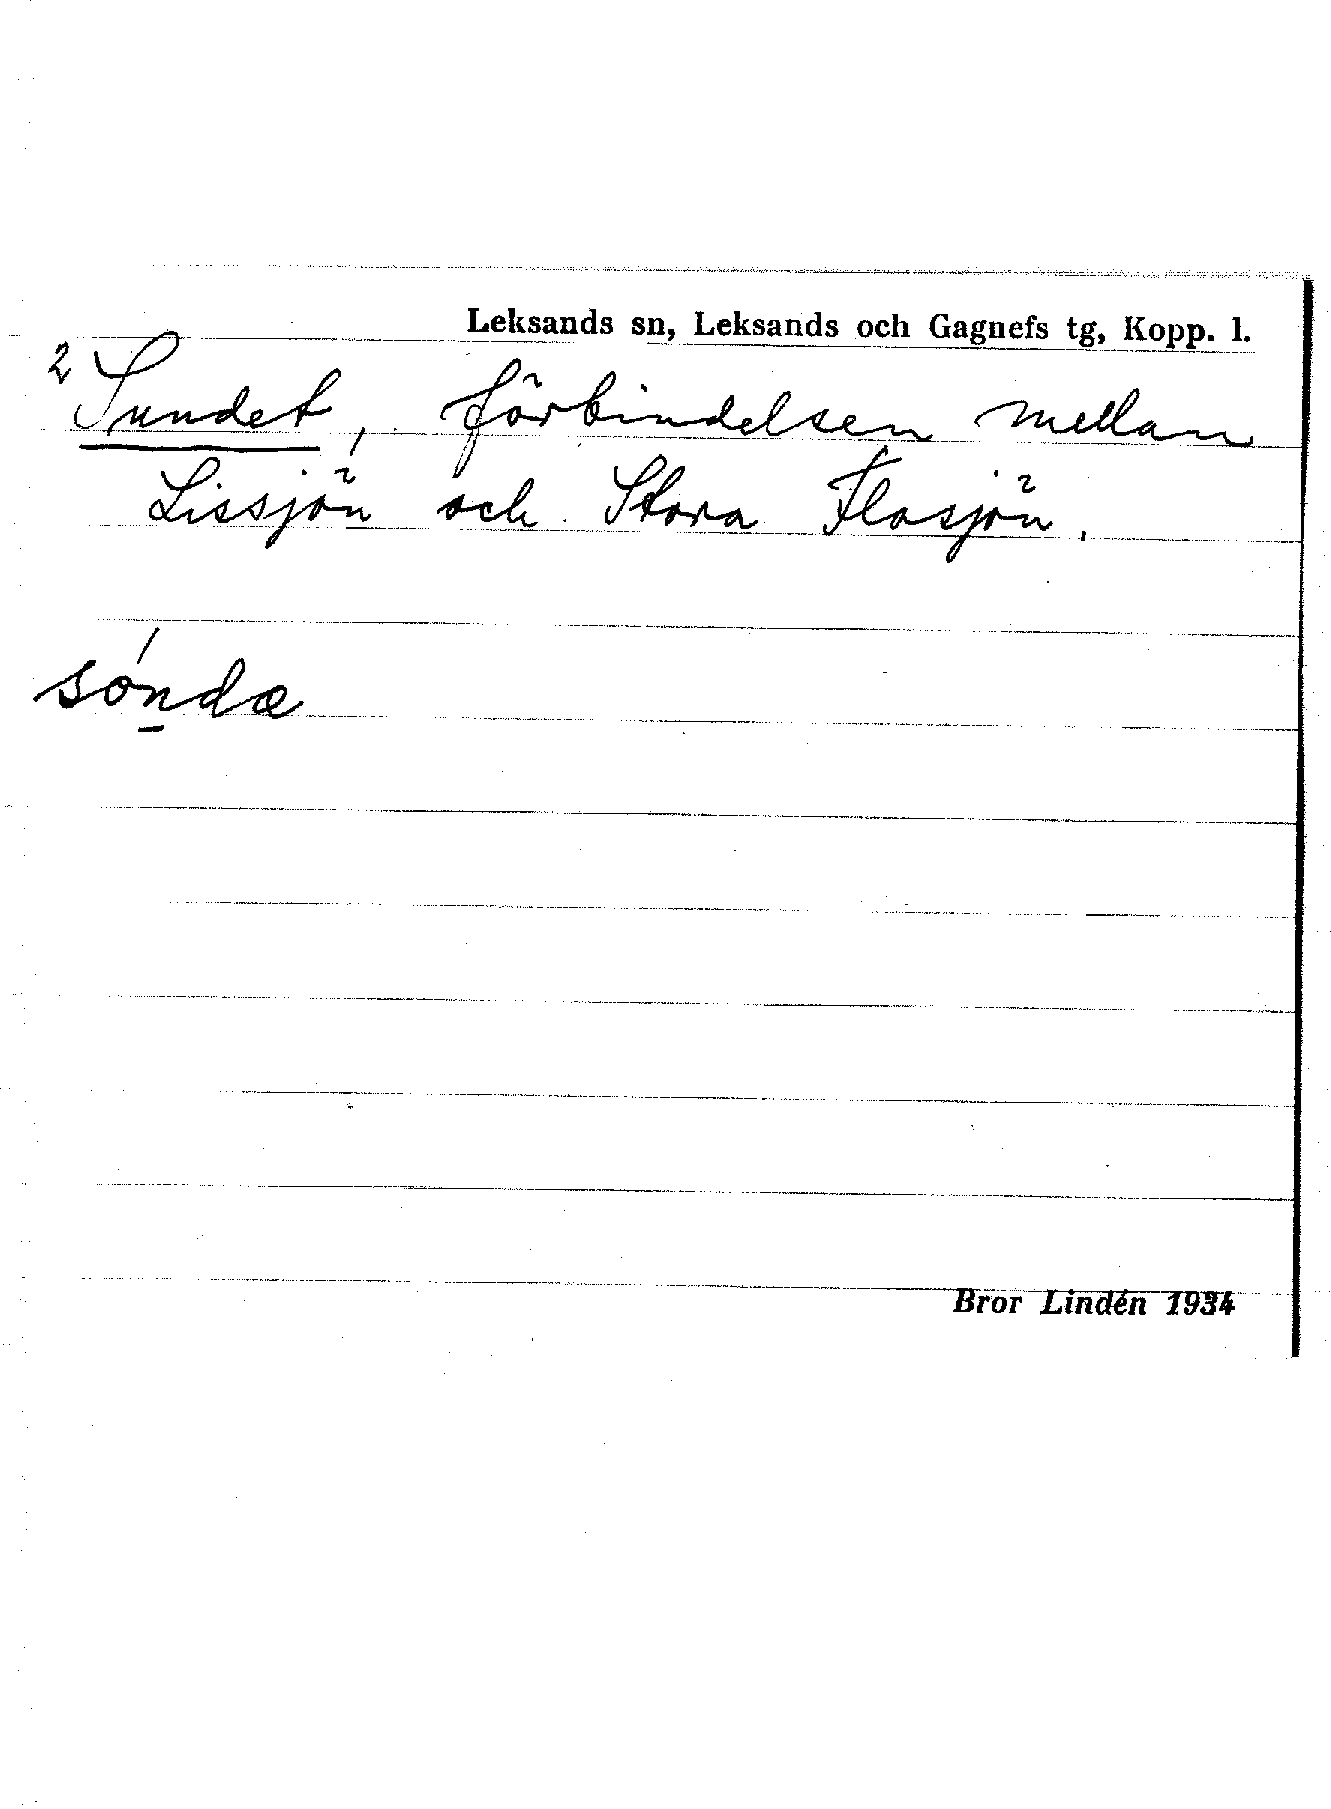 Leksands sn, Leksands och Gagnefs tg, Kopp. l.
2 Sundet, förbindelsen mellan
Lissjön och Stora Flosjön.
só̱ndæ
Bror Lindén 1934